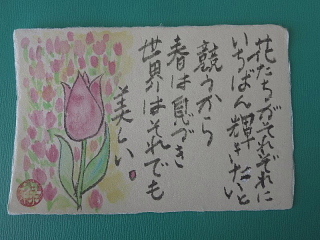 花たちがそれぞれに
いちばん輝きたいと
競うから
春は息づき
世界はそれでも
美しい